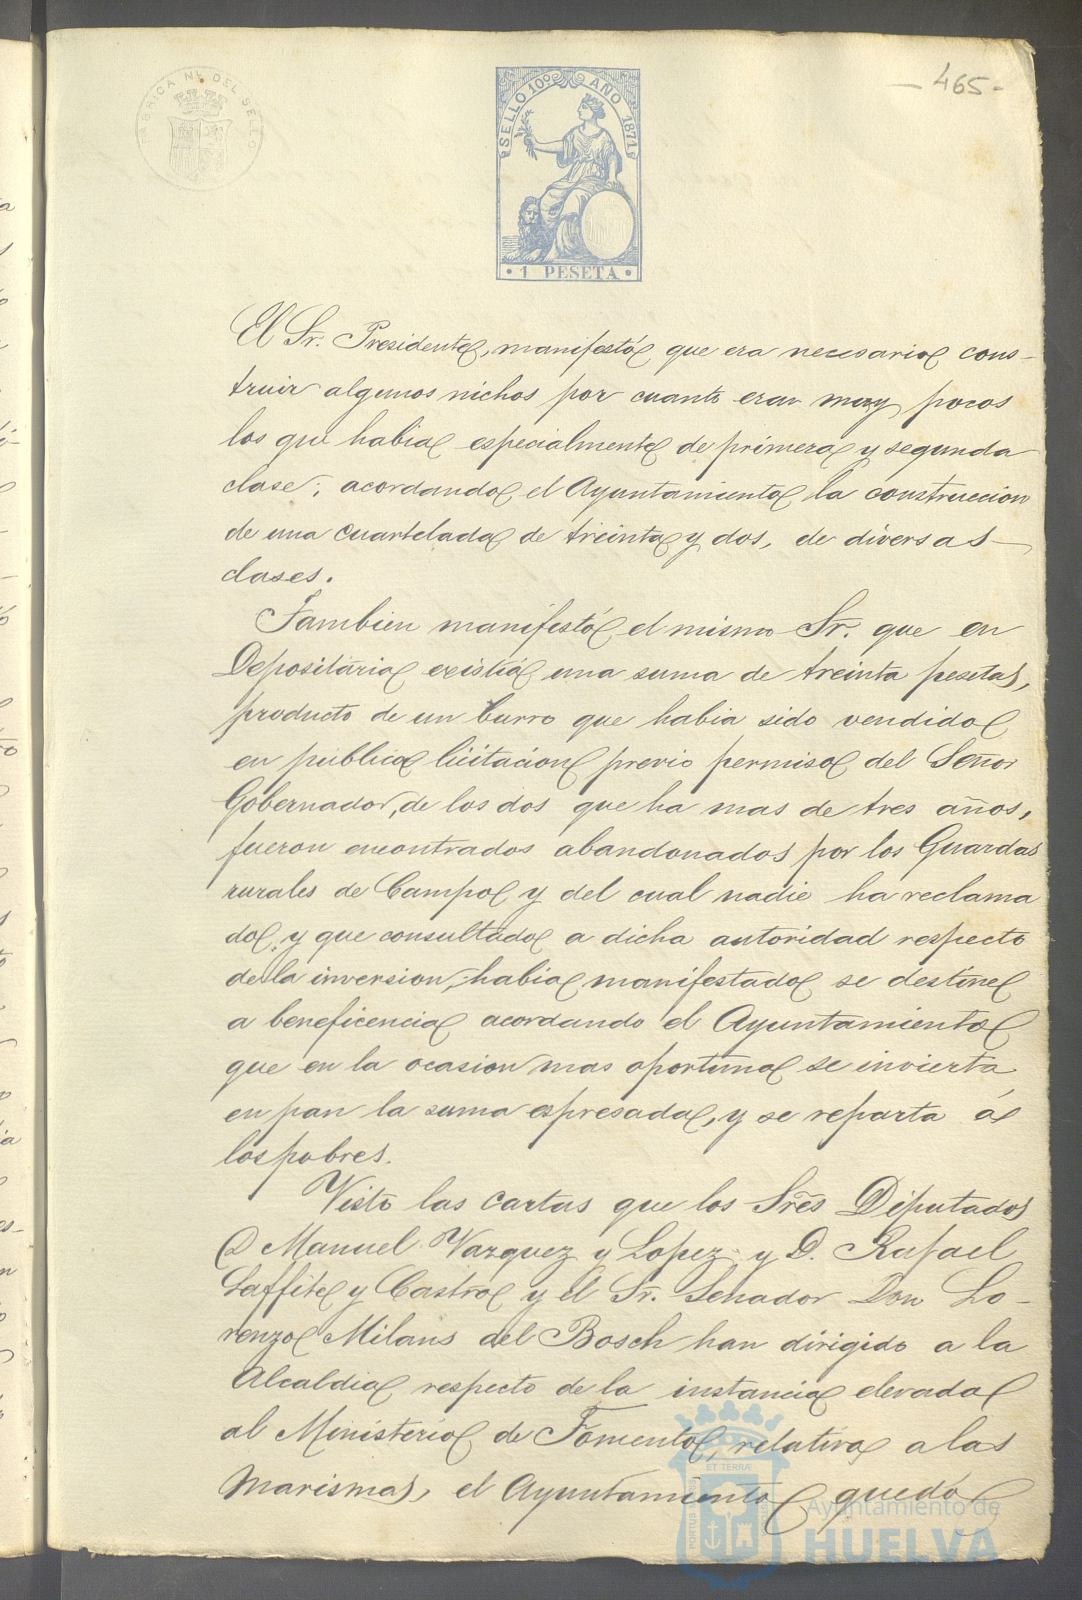 FABRICA NL DEL SELLO
SELLO 10º AÑO 1871
1 PESETA
- 465 -
El Sr. Presidente, manifestó que era necesario cons-
truir algunos nichos por cuanto eran muy pocos
los que habia especialmente de primera y segunda
clase; acordando el Ayuntamiento la construccion
de una cuartelada de treinta y dos, de diversas
clases.
Tambien manifestó el mismo Sr. que en
Depositaria existia una suma de treinta pesetas,
producto de un burro que habia sido vendido
en publica licitacion previo permiso del Señor
Gobernador, de los dos que ha mas de tres años,
fueron encontrados abandonados por los Guardas
rurales de Campo y del cual nadie ha reclama
do, y que consultado a dicha autoridad respecto
de la inversion, habia manifestado se destine
a beneficencia acordando el Ayuntamiento
que en la ocasion mas oportuna se invierta
en pan la suma espresada, y se reparta á
los pobres.
Visto las cartas que los Sres Diputados
D Manuel Vazquez y Lopez y D. Rafael
Laffite y Castro y el Sr. Senador Don Lo-
renzo Milans del Bosch han dirigido a la
Alcaldia respecto de la instancia elevada
al Ministerio de Fomento, relativa a las
marismas, el Ayuntamiento quedó
ET TERRÆ
PORTUS
Ayuntamiento de
HUELVA